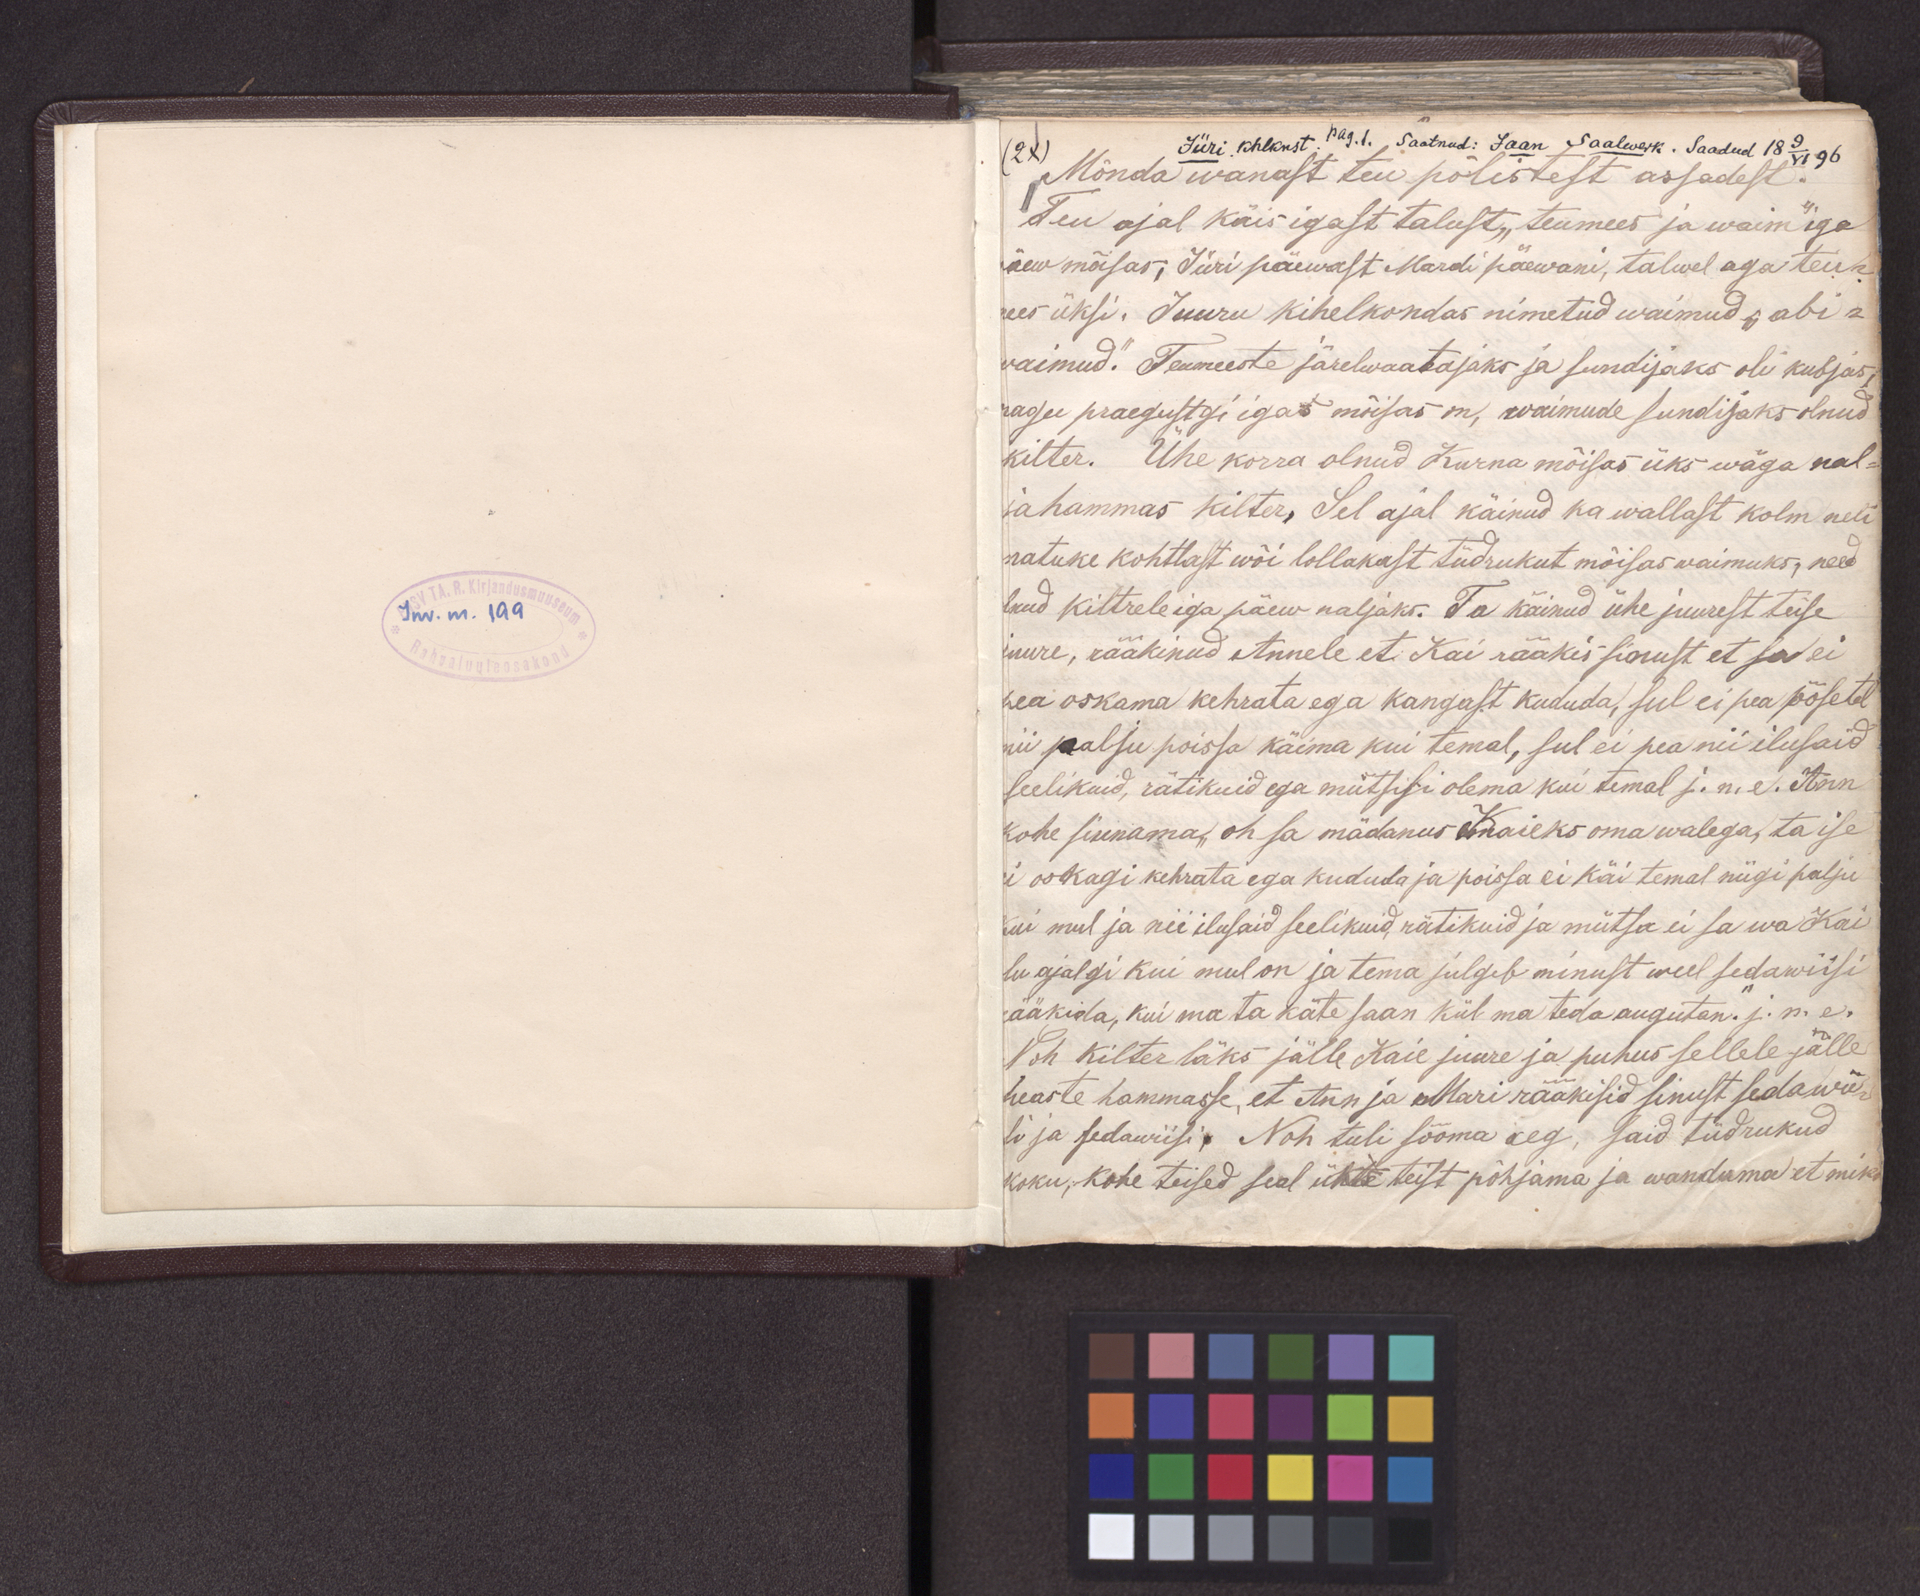 ENSV TA. R. Kirjandusmuuseum
Inv. m. 199
Rahvaluuleosakond
(2x) Jüri khlknst. pag. 1. Saatnud: Jaan Saalwerk. Saadud 18 9/VI 96
Mõnda wanast teu põlistest assadest.
Teu ajal käis igast talust „teumees ja waim" iga
äew mõisas, Jüri päewast Mardi päewani, talwel aga teu=
ees üksi. Juuru kihelkondas nimetud waimud „abi=
waimud." Teumeeste järelwaatajaks ja sundijaks oli kubjas,
nagu praegustgi igas mõisas on, waimude sundijaks olnud
kilter. Ühe korra olnud Kurna mõisas üks wäga nal=
jahammas kilter, Sel ajal käinud ka wallast kolm neli
natuke kohtlast wõi lollakast tüdrukut mõisas waimuks, need
lnud kiltrele iga päew naljaks. Ta käinud ühe juurest teise
juure, rääkinud Annele et Kai rääkis sinust et sa ei
pea oskama kehrata ega kangast kududa, sul ei pea öösetel
nii palju poissa käima kui temal, sul ei pea nii ilusaid
seelikuid, rätikuid ega mütsisi olema kui temal j. n. e. Ann
kohe sinnama, „oh sa mädanus Kaieks oma walega, ta ise
i oskagi kehrata ega kududa ja poissa ei käi temal niigi palju
kui mul ja nii ilusaid seelikuid, rätikuid ja mütsa ei sa wa Kai
lu ajalgi kui mul on ja tema julgeb minust weel sedawiisi
rääkida, kui ma ta käte saan kül ma teda augutan." j. n. e.
Noh kilter läks jälle Kaie juure ja puhus sellele jälle
heaste hammasse, et Ann ja Mari rääkisid sinust sedawii=
si ja sedawiisi. Noh tuli sööma aeg, said tüdrukud
koku, kohe teised seal ühte teist põhjama ja wanduma et miks